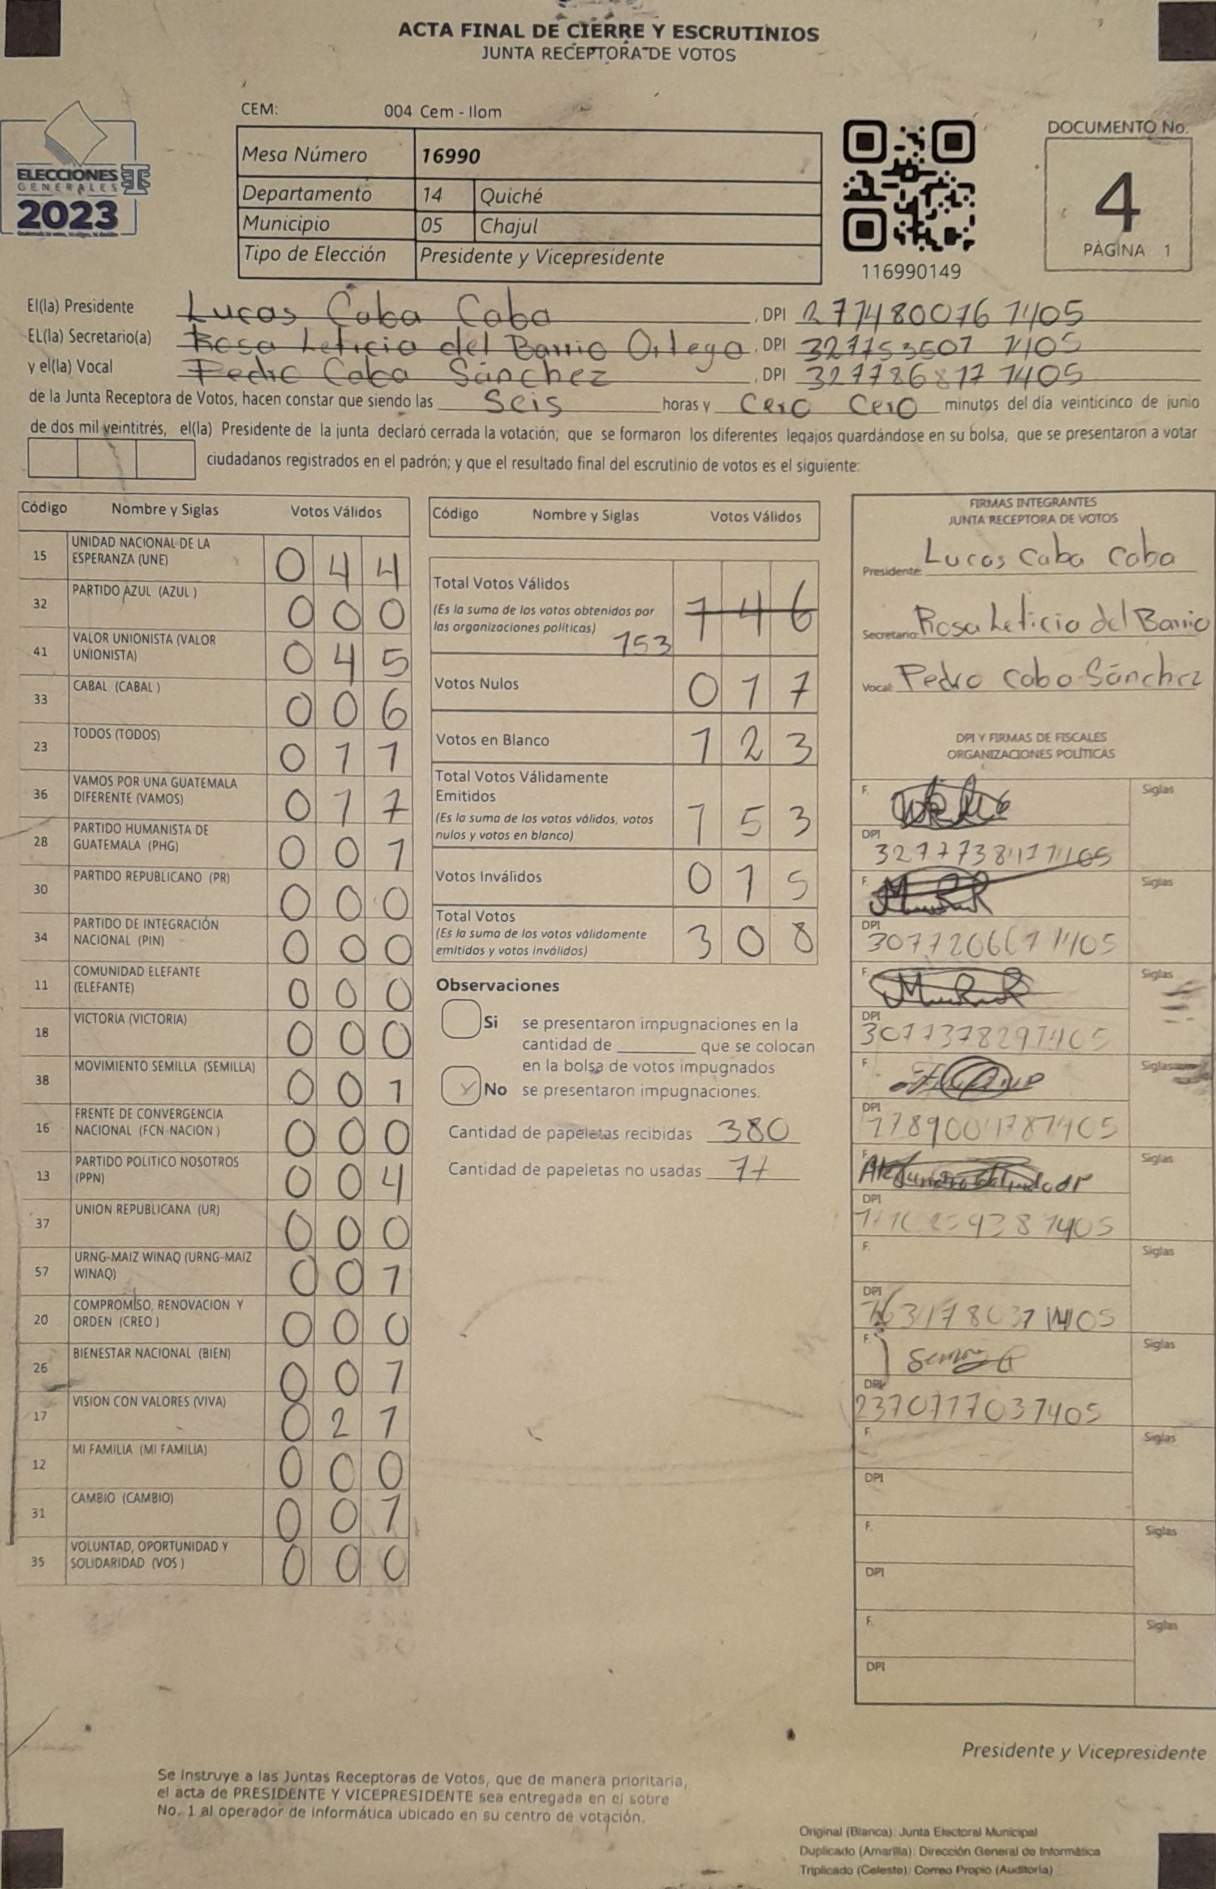 ACTA FINAL DE CIERRE Y ESCRUTINIOS
JUNTA RECEPTORA DE VOTOS
CEM: 004 Cem - Ilom
ELECCIONES
GENERALES
2023
Mesa Número 16990
Departamento 14 Quiché
Municipio 05 Chajul
Tipo de Elección Presidente y Vicepresidente
116990149
DOCUMENTO No.
4
PÁGINA 1
El(la) Presidente Lucas Caba Caba, DPI
EL(la) Secretario(a) Rosa Leticia del Barrio Ortega, DPI
y el(la) Vocal Pedro Caba Sánchez, DPI
de la Junta Receptora de Votos, hacen constar que siendo las Seis horas y Cero Cero minutos del día veinticinco de junio
de dos mil veintitrés, el(la) Presidente de la junta declaró cerrada la votación; que se formaron los diferentes legajos guardándose en su bolsa, que se presentaron a votar
ciudadanos registrados en el padrón; y que el resultado final del escrutinio de votos es el siguiente:
Código Nombre y Siglas Votos Válidos
15 UNIDAD NACIONAL DE LA ESPERANZA (UNE) 0 4 4
32 PARTIDO AZUL (AZUL ) 0 0 0
41 VALOR UNIONISTA (VALOR UNIONISTA) 0 4 5
33 CABAL (CABAL ) 0 0 6
23 TODOS (TODOS) 0 1 1
36 VAMOS POR UNA GUATEMALA DIFERENTE (VAMOS) 0 1 7
28 PARTIDO HUMANISTA DE GUATEMALA (PHG) 0 0 1
30 PARTIDO REPUBLICANO (PR) 0 0 0
34 PARTIDO DE INTEGRACIÓN NACIONAL (PIN) 0 0 0
11 COMUNIDAD ELEFANTE (ELEFANTE) 0 0 0
18 VICTORIA (VICTORIA) 0 0 0
38 MOVIMIENTO SEMILLA (SEMILLA) 0 0 1
16 FRENTE DE CONVERGENCIA NACIONAL (FCN-NACION ) 0 0 0
13 PARTIDO POLITICO NOSOTROS (PPN) 0 0 4
37 UNION REPUBLICANA (UR) 0 0 0
57 URNG-MAIZ WINAQ (URNG-MAIZ WINAQ) 0 0 1
20 COMPROMISO, RENOVACION Y ORDEN (CREO ) 0 0 0
26 BIENESTAR NACIONAL (BIEN) 0 0 1
17 VISION CON VALORES (VIVA) 0 2 1
12 MI FAMILIA (MI FAMILIA) 0 0 0
31 CAMBIO (CAMBIO) 0 0 1
35 VOLUNTAD, OPORTUNIDAD Y SOLIDARIDAD (VOS ) 0 0 0
Código Nombre y Siglas Votos Válidos
Total Votos Válidos
(Es la suma de los votos obtenidos por
las organizaciones políticas) 153 1 4 6
Votos Nulos 0 1 7
Votos en Blanco 1 2 3
Total Votos Válidamente
Emitidos
(Es la suma de los votos válidos, votos
nulos y votos en blanco) 1 5 3
Votos Inválidos 0 1 5
Total Votos
(Es la suma de los votos válidamente
emitidos y votos inválidos) 3 0 8
Observaciones
Si se presentaron impugnaciones en la
cantidad de ________ que se colocan
en la bolsa de votos impugnados
No se presentaron impugnaciones.
Cantidad de papeletas recibidas 380
Cantidad de papeletas no usadas 71
FIRMAS INTEGRANTES
JUNTA RECEPTORA DE VOTOS
Presidente: Lucas Caba Caba
Secretario: Rosa Leticia del Barrio
Vocal: Pedro Cabo Sánchez
DPI Y FIRMAS DE FISCALES
ORGANIZACIONES POLÍTICAS
F. Siglas
DPI
F. Siglas
DPI
F. Siglas
DPI
F. Siglas
DPI
F. Siglas
DPI
F. Siglas
DPI
F. Siglas
DPI
F. Siglas
DPI
F. Siglas
DPI
F. Siglas
DPI
Presidente y Vicepresidente
Se instruye a las Juntas Receptoras de Votos, que de manera prioritaria,
el acta de PRESIDENTE Y VICEPRESIDENTE sea entregada en el sobre
No. 1 al operador de informática ubicado en su centro de votación.
Original (Blanca): Junta Electoral Municipal
Duplicado (Amarilla): Dirección General de Informática
Triplicado (Celeste): Correo Propio (Auditoría)